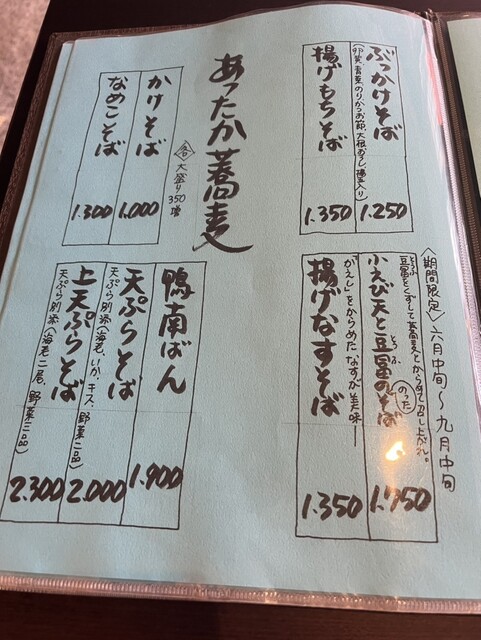 ぶっかけそば
(卵黄、青菜、のり、かつお節、大根おろし、揚玉入り)
1.250
揚げもちそば
1.350
〈期間限定〉六月中旬〜九月中旬
豆冨をくずして蕎麦とからめて召し上がれ。
小えび天と豆冨ののったそば
1.750
揚げなすそば
「かえし」をからめたなすが美味ー
1.350
あったか蕎麦
各 大盛り350増
かけそば
1.000
なめこそば
1.300
鴨南ばん
1.900
天ぷらそば
天ぷら別添(海老、いか、キス、野菜二品)
2.000
上天ぷらそば
天ぷら別添(海老二尾、野菜三品)
2.300